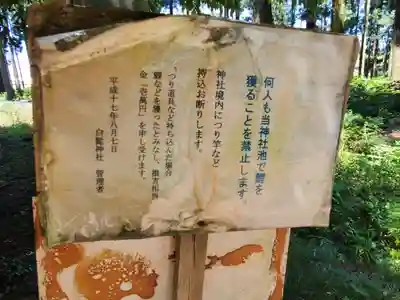 何人も当神社池で鯉を
獲ることを禁止します。
神社境内につり竿など
持込お断りします。
つり道具など持ち込んだ場合
鯉などを獲ったとみなし、損害賠償
金「壱萬円」を申し受けます。
平成十七年八月七日
白鬚神社 管理者